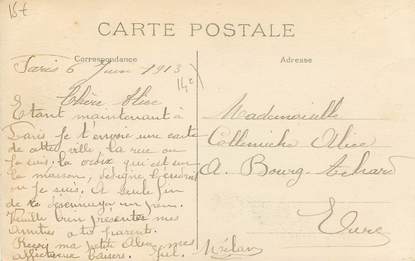 15€
CARTE POSTALE
Correspondance
Adresse
Paris 6 Juin 1913
14e
Chère Alice
Etant maintenant à
Paris je t'envoie une carte
de cette ville la rue ou
je suis. la croix qui est sur
la maison, désigne l'endroit
ou je suis. A seule fin
de te désennuyer un peu.
Veuille bien présenter mes
Amitiés a tes parents.
Reçoy ma petite Alice mes
affectueux baisers.
Mademoiselle
Alice
A. Bourg-Achard
Eure